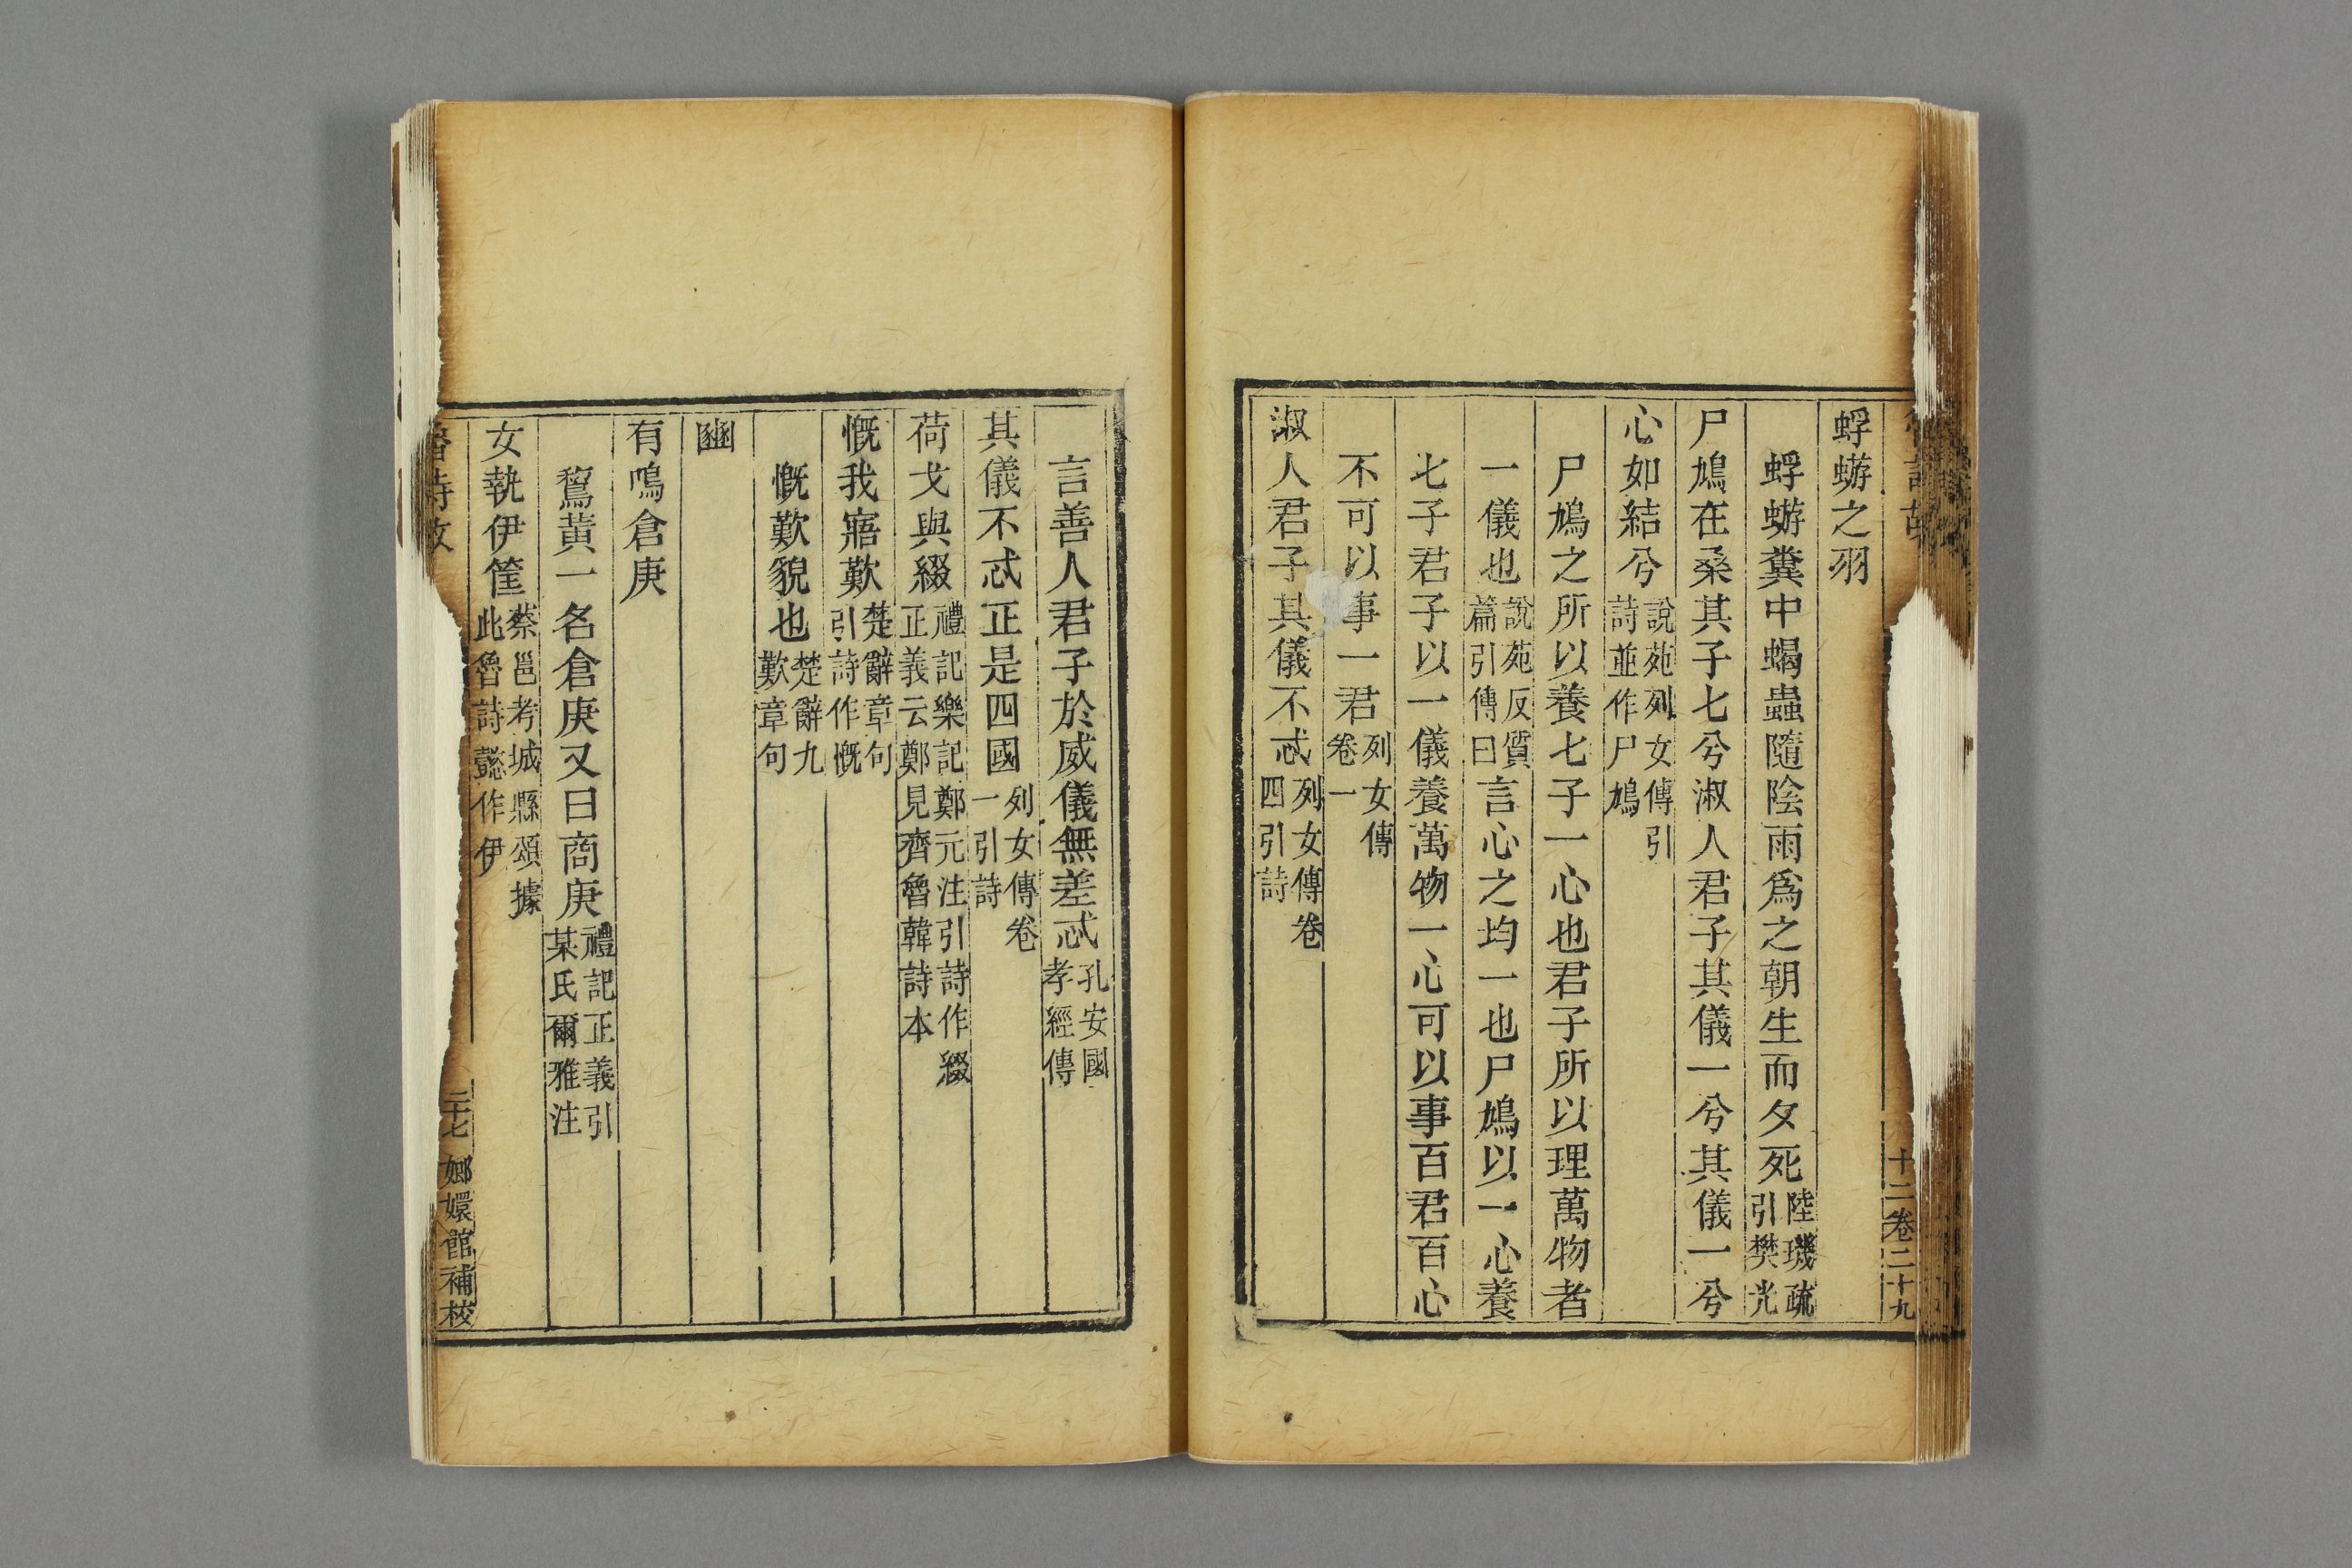 十二卷二十九
蜉蝣之羽
蜉蝣糞中蝎蟲隨陰雨爲之朝生而夕死陸璣疏引樊光
尸鳩在桑其子七兮淑人君子其儀一兮其儀一兮
心如結兮說苑列女傳引詩並作尸鳩
尸鳩之所以養七子一心也君子所以理萬物者
一儀也說苑反質篇引傳曰言心之均一也尸鳩以一心養
七子君子以一儀養萬物一心可以事百君百心
不可以事一君列女傳卷一
淑人君子其儀不忒列女傳卷四引詩
言善人君子於威儀無差忒孔安國孝經傳
其儀不忒正是四國列女傳卷一引詩
荷戈與綴禮記樂記鄭元注引詩作綴正義云鄭見齊魯韓詩本
慨我寤歎楚辭章句引詩作慨
慨歎貌也楚辭九歎章句
豳
有鳴倉庚
鵹黃一名倉庚又曰商庚禮記正義引某氏爾雅注
女執伊筐蔡邕考城縣頌據此魯詩懿作伊
二十七 嫏嬛館補校